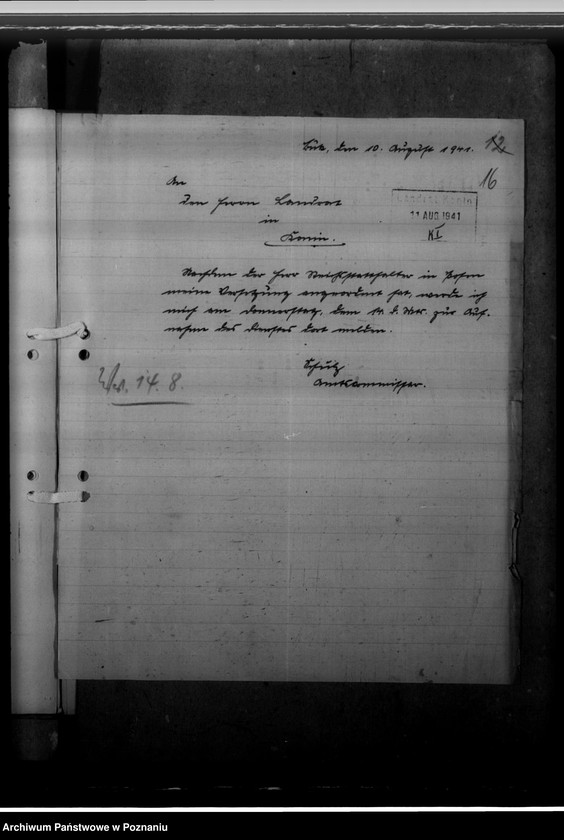 Buk, den 10. August 1941.
12
16
An
den Herrn Landrat
in
Konin.
Landrat Konin
11 AUG 1941
KI
Nachdem der Herr Reichsstatthalter in Posen
meine Versetzung angeordnet hat, werde ich
mich am Donnerstag, dem 14. d. Mts. zur Auf-
nahme des Dienstes dort melden.
Schulz
Amtskommissar.
14. 8.
Archiwum Państwowe w Poznaniu